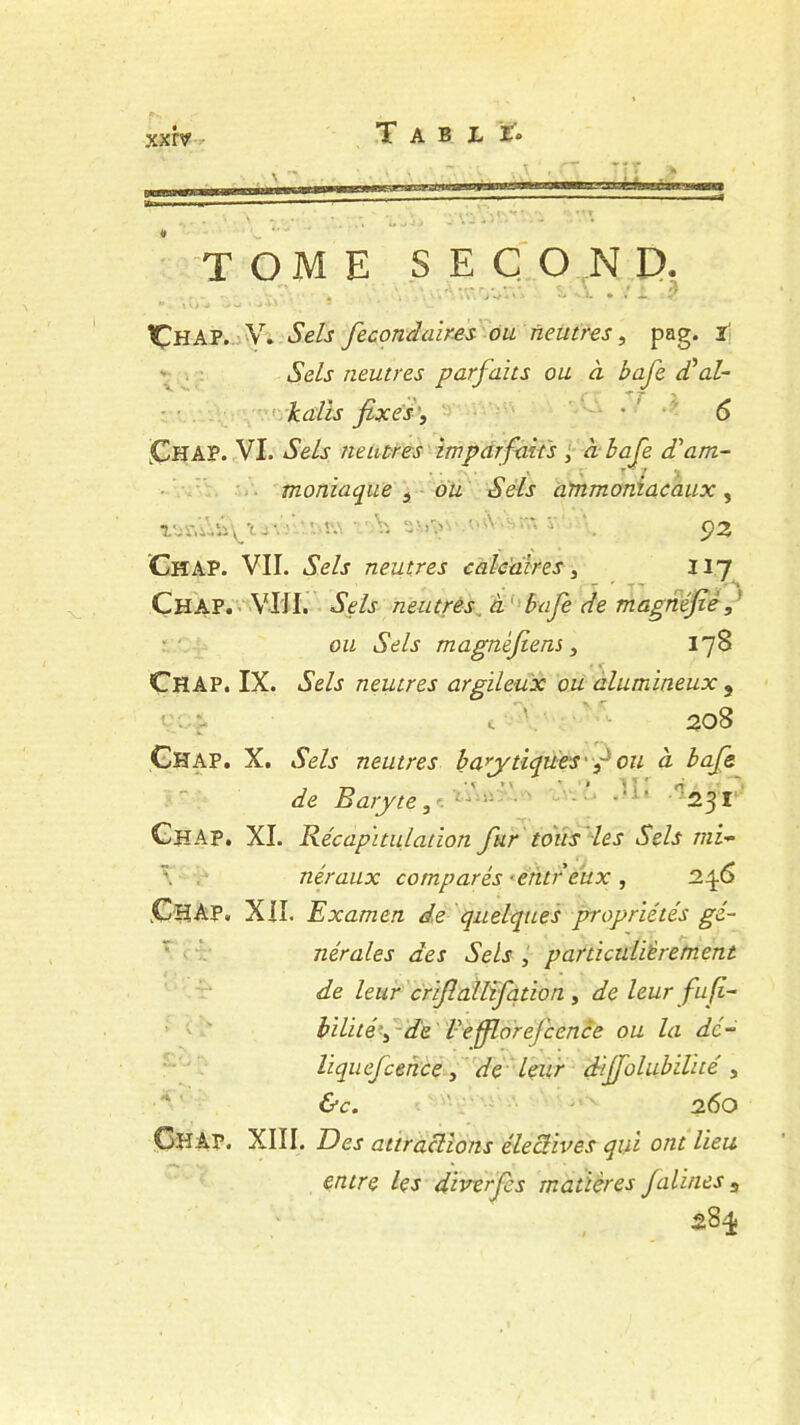 xxiv TABLE.
TOME SECOND.
CHAP. V. Sels ſecondaires ou neutres, pag. 1
Sels neutres parfaits ou à baſe d'al-
kalis fixes, 6
CHAP. VI. Sels neutres imparfaits, à baſe d'am-
moniaque, ou Sels ammoniacaux,
92
CHAP. VII. Sels neutres calcaires, 117
CHAP. VIII. Sels neutres à baſe de magnéſie,
ou Sels magnéſiens, 178
CHAP. IX. Sels neutres argileux ou alumineux,
208
CHAP. X. Sels neutres barytiques, ou à baſe
de Baryte, 231
CHAP. XI. Récapitulation ſur tous les Sels mi-
néraux comparés entr'eux, 246
CHAP. XII. Examen de quelques propriétés gé-
nérales des Sels, particulièrement
de leur criſtalliſation, de leur fuſi-
bilité, de l'effloreſcence ou la dé-
liqueſcence, de leur diſſolubilité,
&c. 260
CHAP. XIII. Des attractions électives qui ont lieu
entre les diverſes matières ſalines,
284